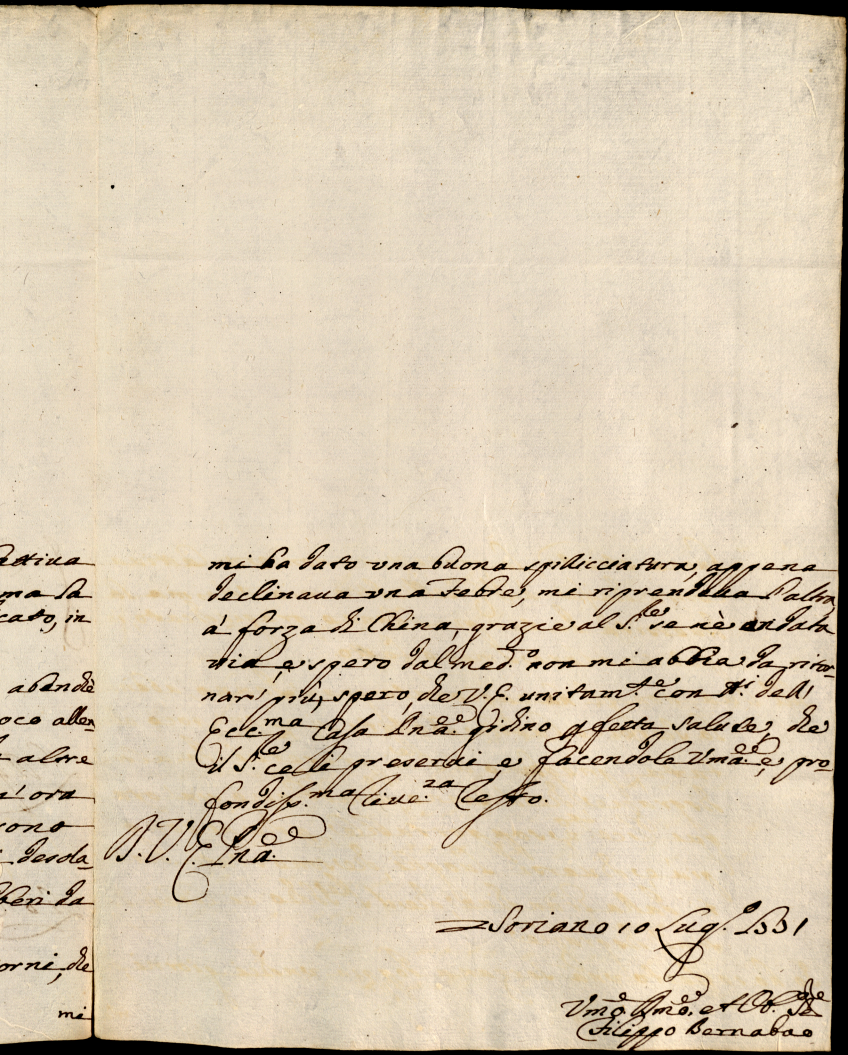 ma la
cato, in
altre
n'ora
sono
desola-
beri da
orni, che
mi
mi ha dato una buona spilicciatura, appena
declinaua una Febre, mi riprendeua l'altra,
á forza di China, grazie al S.re se nè andata
uia, e spero dal med.o non mi abbia da ritor-
nar' più, spero, che V.E. unitam.te con tt.i dell'
Ecc.ma Casa Pna. godino perfetta salute, che
il S.re ce li preserui, e facendole Vma. e, pro-
fondiss.ma riue.za resto.
D. V. E. Pna.
Soriano 10 Lug.o 1731
Vmo. Dmo. et Ob. Se.
Filippo Bernabao